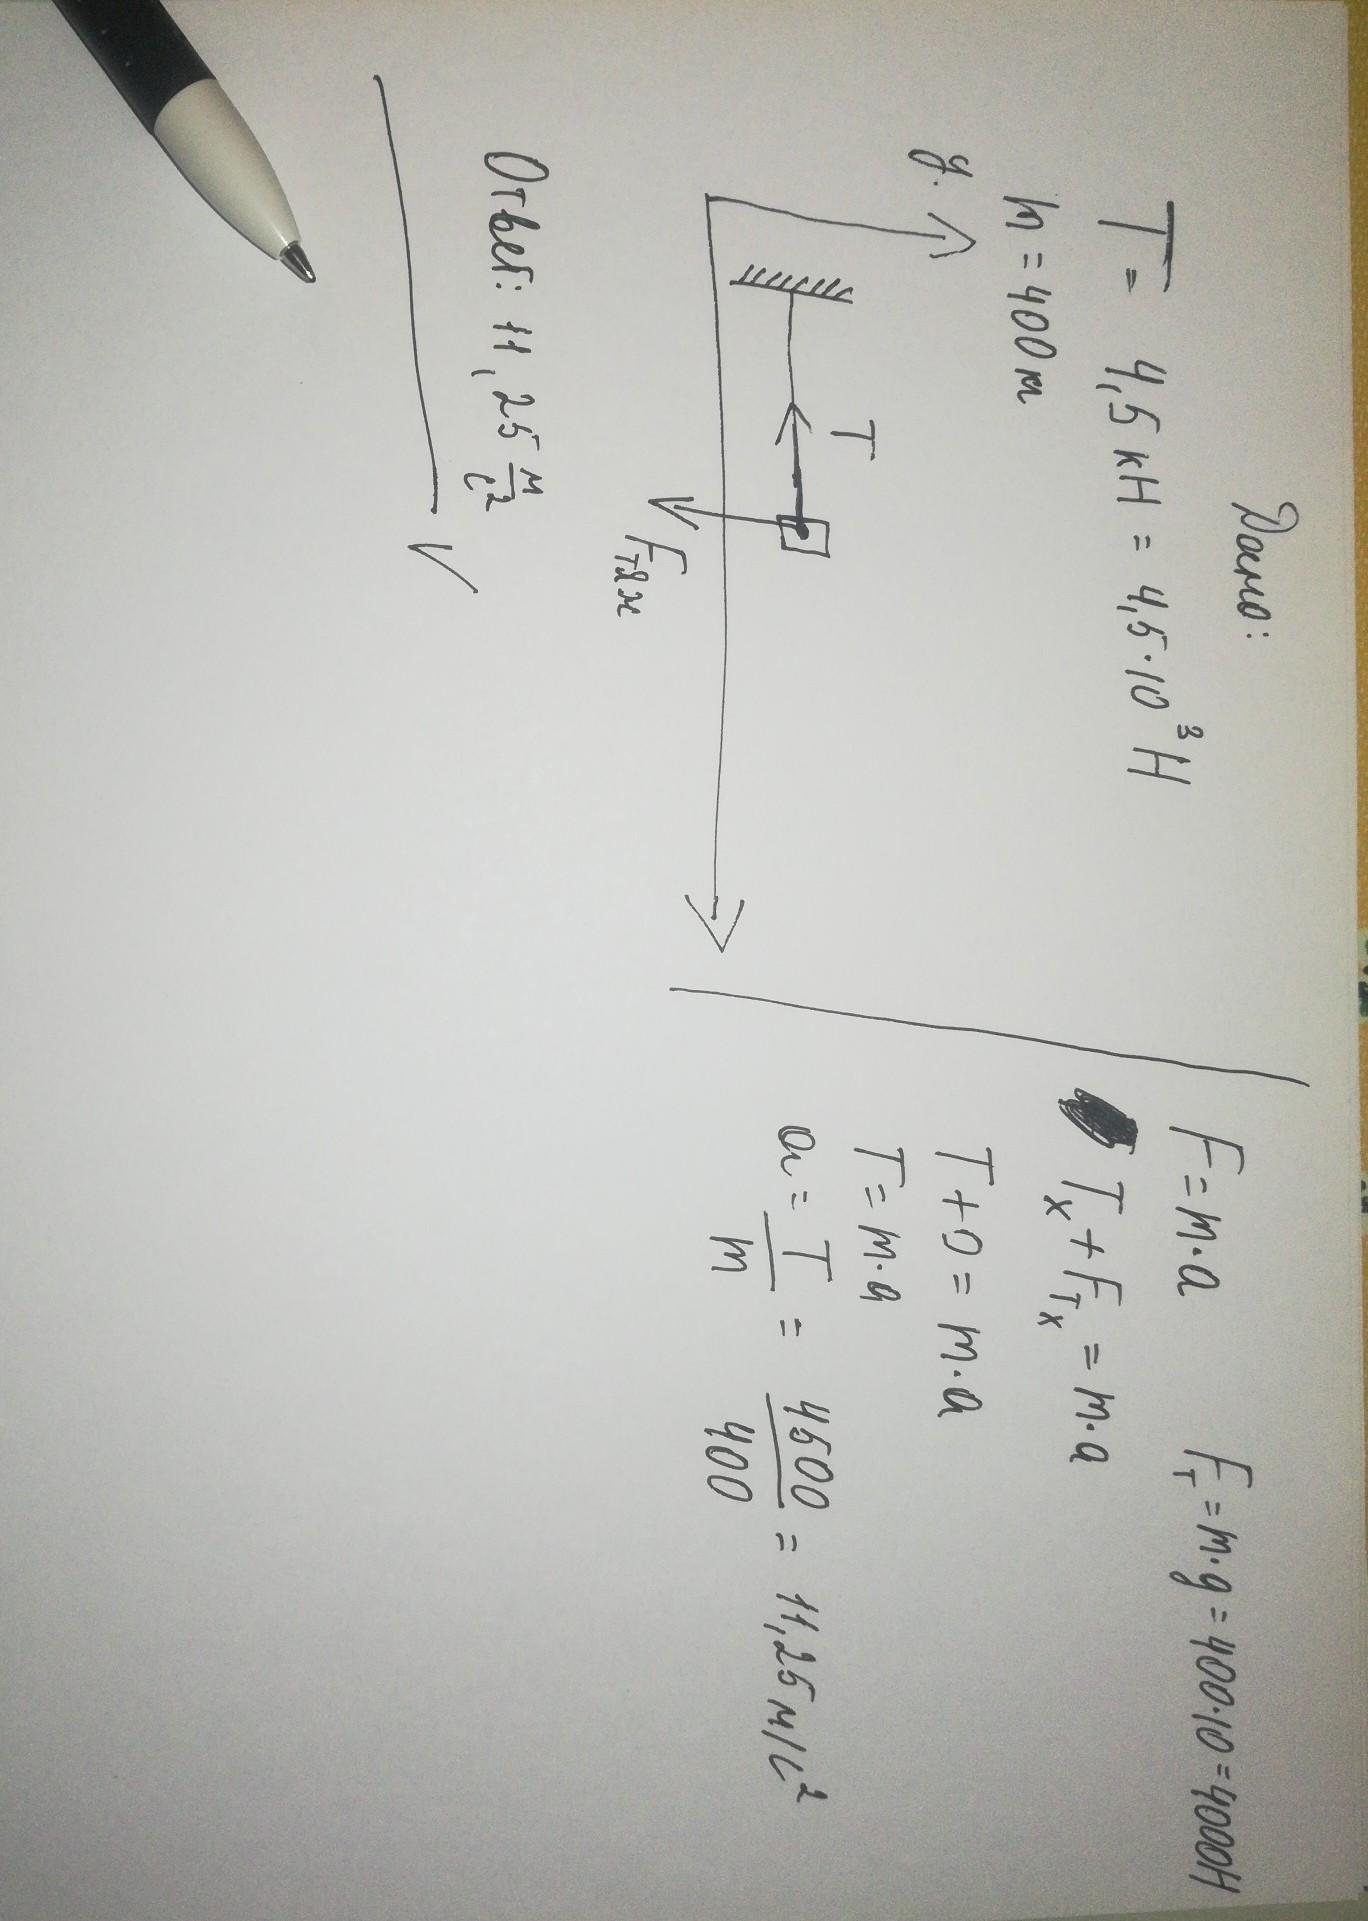 Дано:
T = 4,5 кН = 4,5·10³ Н
m = 400 м
y.
T
Fтяж
Ответ: 11,25 м/с²
F = m·a
Fт = m·g = 400·10 = 4000Н
Tx + Fтx = m·a
T + 0 = m·a
T = m·a
a = T/m = 4500/400 = 11,25 м/с²